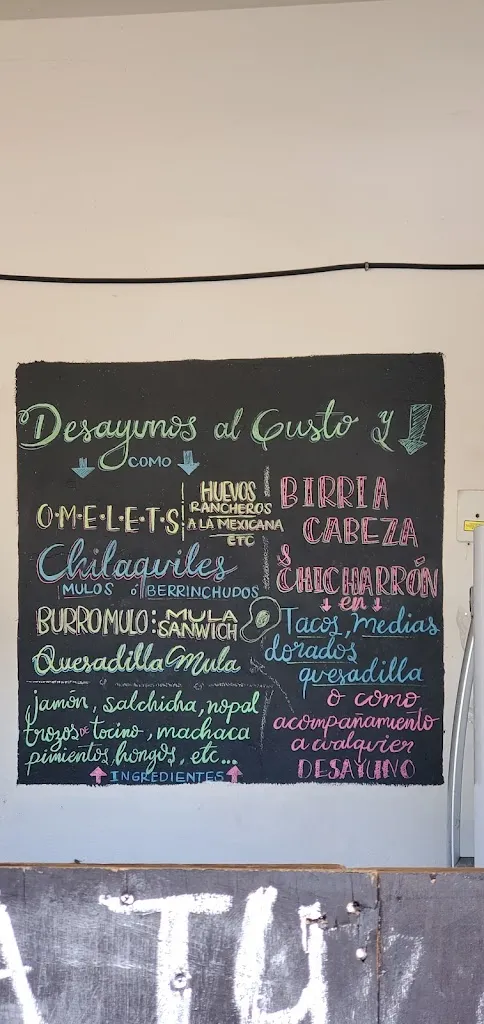 Desayunos al Gusto y
COMO
O·M·E·L·E·T·S
HUEVOS
RANCHEROS
A LA MEXICANA
ETC
Chilaquiles
MULOS ó BERRINCHUDOS
BURROMULO: MULA
SANWICH
Quesadilla Mula
jamón, salchicha, nopal
trozos DE tocino, machaca
pimientos, hongos, etc...
INGREDIENTES
BIRRIA
CABEZA
&
CHICHARRÓN
en
Tacos, medias
dorados
quesadilla
o como
acompañamiento
a cualquier
DESAYUNO
ATU